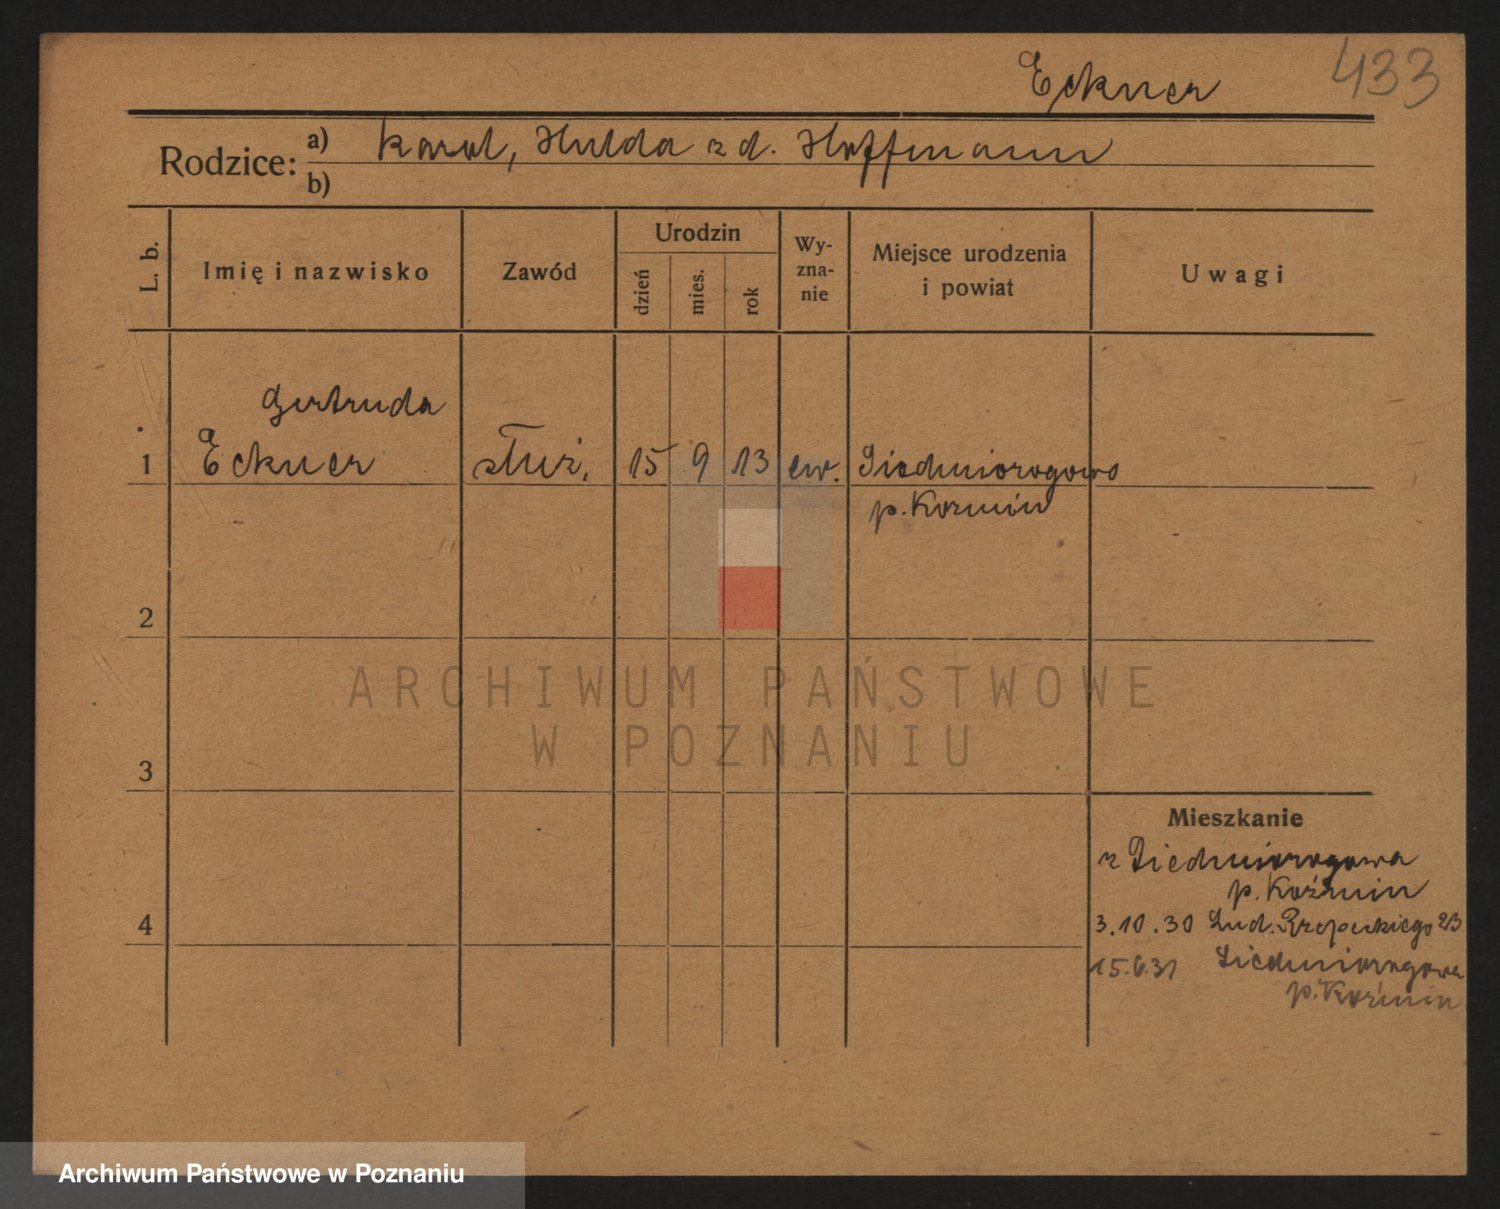 Eckner
433
Rodzice:
a) Karol, Hulda z d. Hoffmann
b)
L. b.
Imię i nazwisko
Zawód
Urodzin
dzień
mies.
rok
Wy-
zna-
nie
Miejsce urodzenia
i powiat
Uwagi
Gertruda
1 Eckner służ. 15 9 13 ew. Siedmiorogowo
p. Koźmin
2
ARCHIWUM PAŃSTWOWE
W POZNANIU
3
Mieszkanie
z Siedmiorogowa
p. Koźmin
4
3.10.30 Lud. Rzepeckiego 23
15.6.31 Siedmiorogowa
p. Koźmin
Archiwum Państwowe w Poznaniu